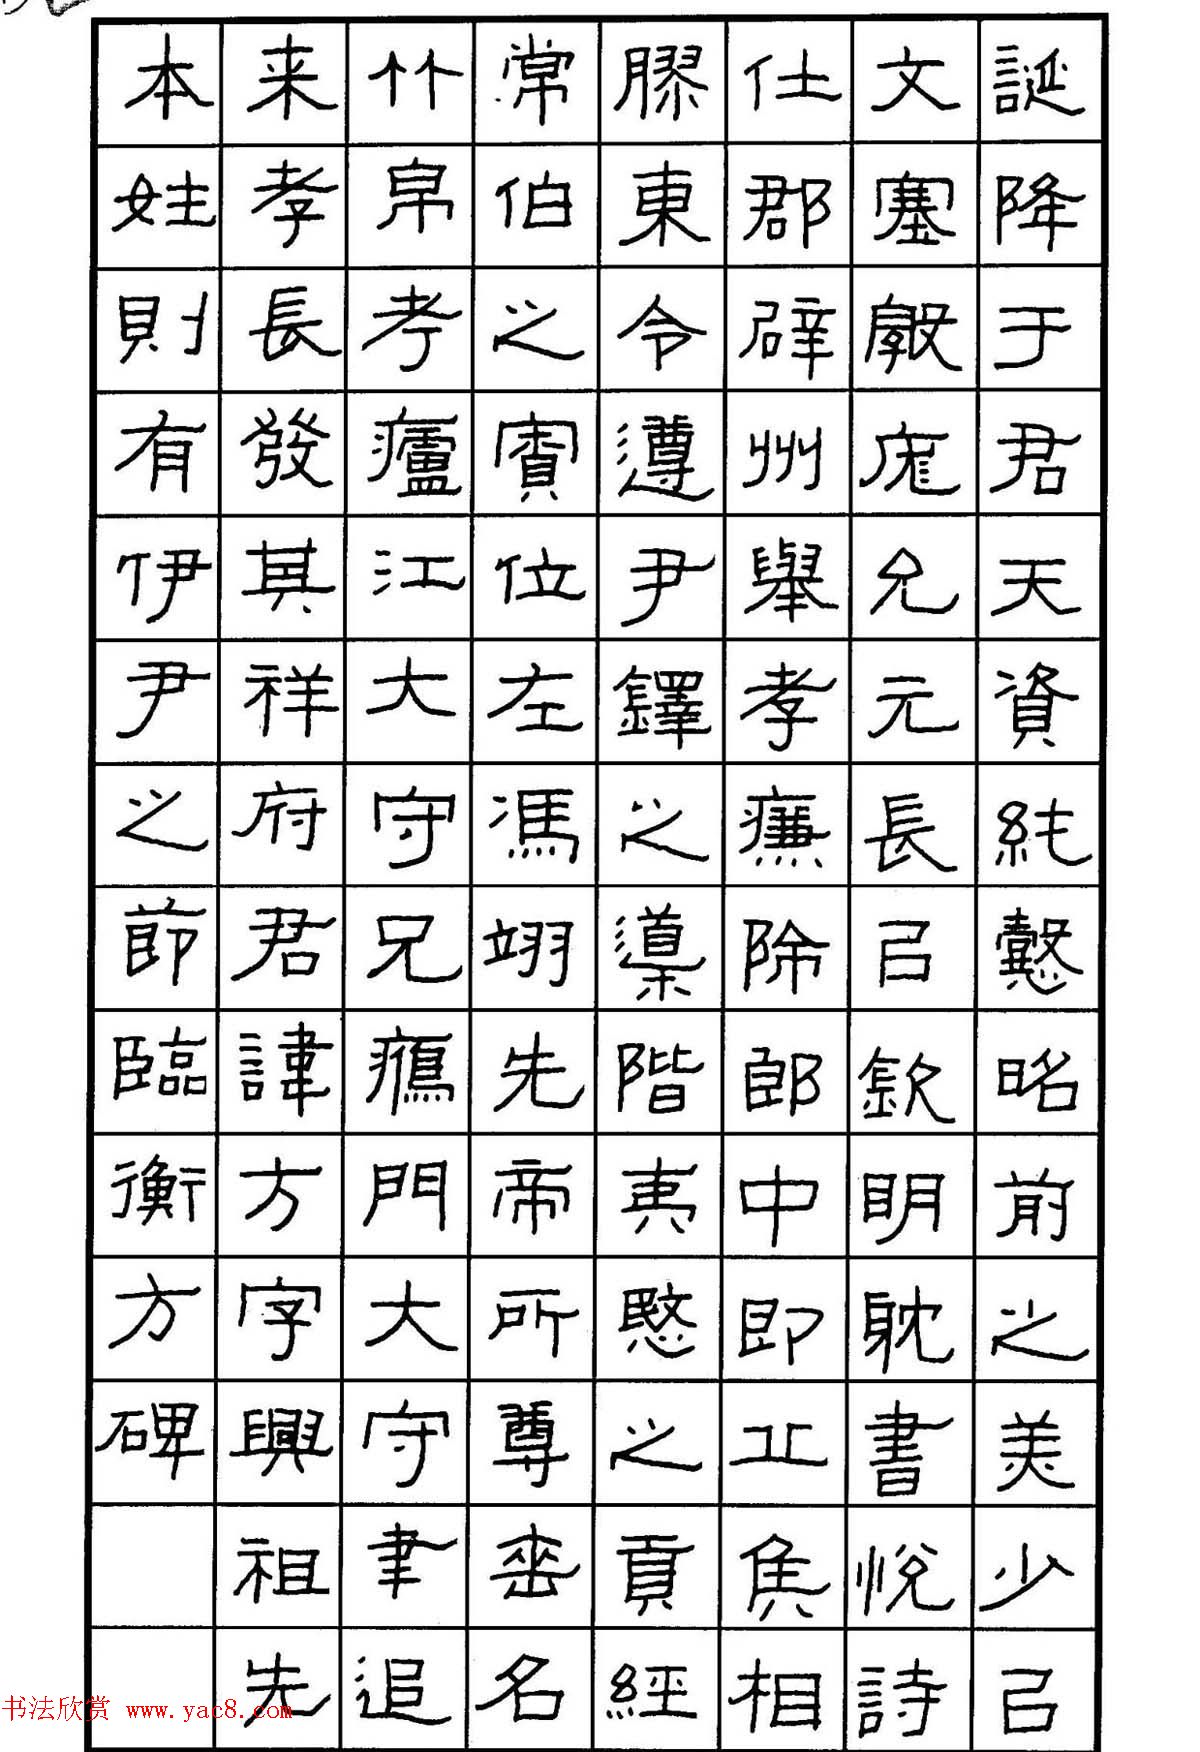 誕降于君天資純懿昭前之美少㠯
文塞敦庬允元長㠯欽明耽書悅詩
仕郡辟州舉孝廉除郎中即丘侯相
膠東令遵尹鐸之導階夷愍之貢經
常伯之寮位左馮翊先帝所尊垂名
竹帛考廬江大守兄鴈門大守聿追
来孝長發其祥府君諱方字興祖先
本姓則有伊尹之節臨衡方碑
书法欣赏 www.yac8.com